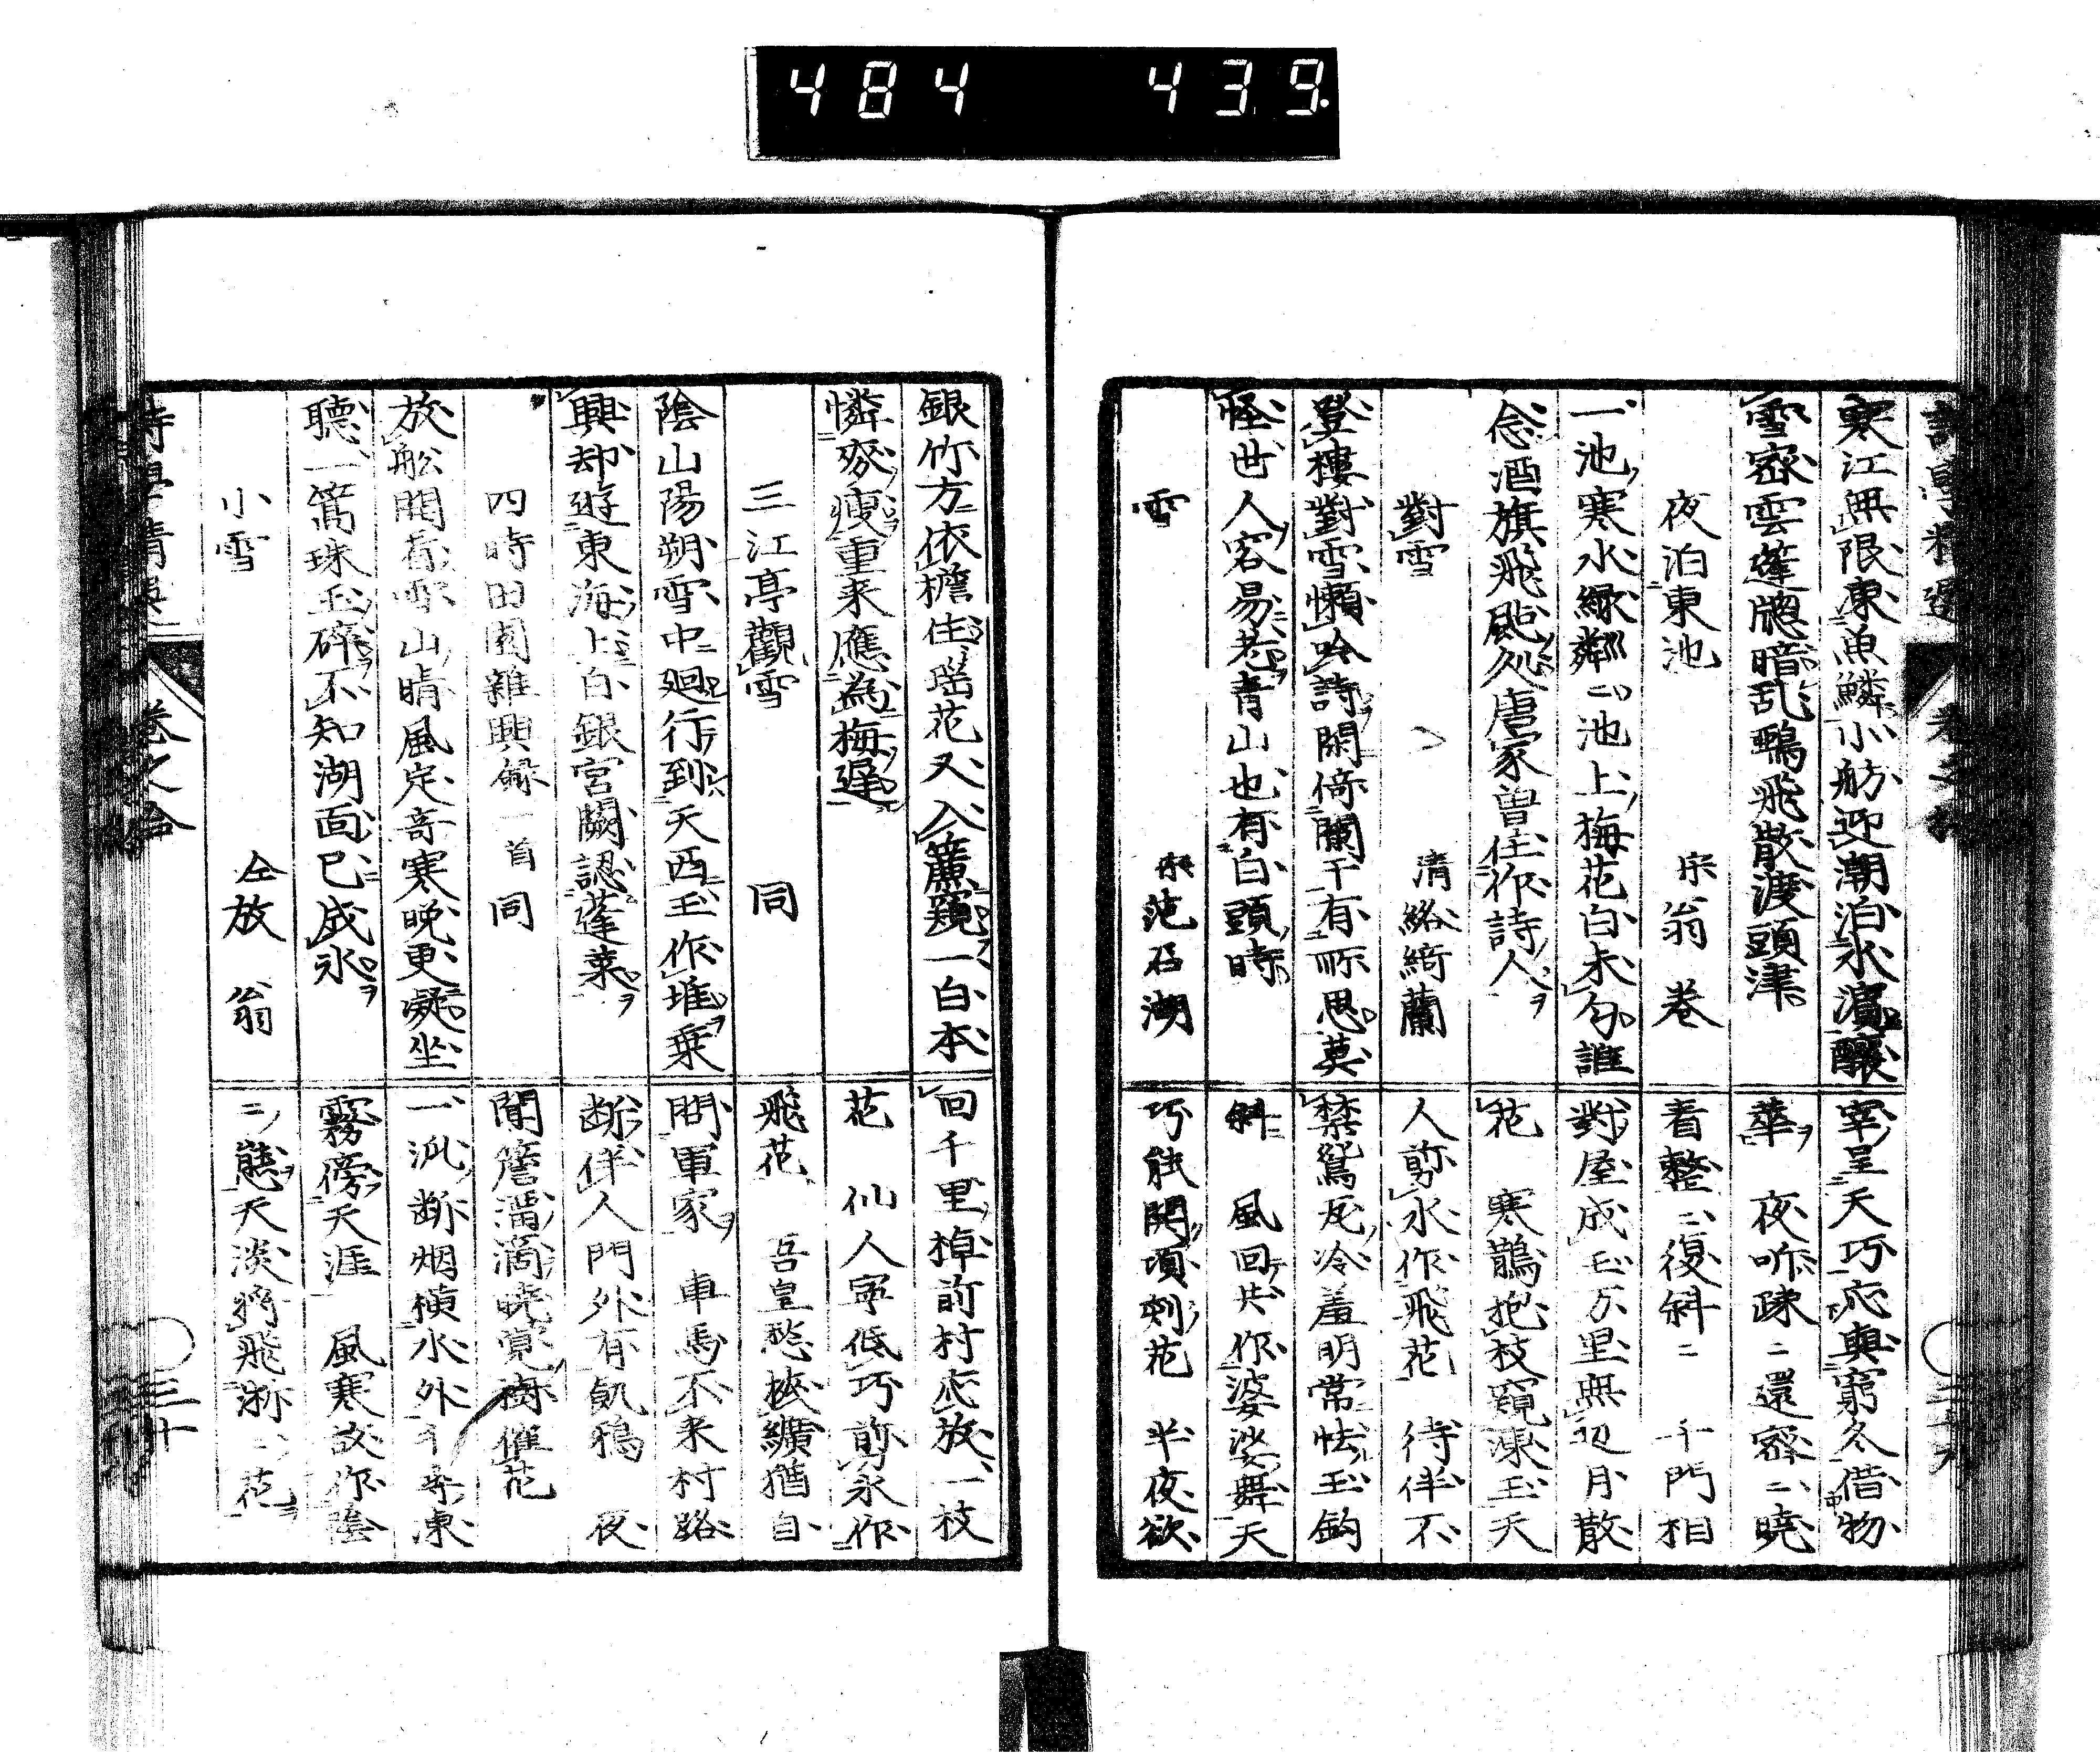 484 439
寒江無限凍魚鱗小舫迎潮泊水濱釀
雪密雲蓬牕暗乱鴨飛散渡頭津
夜泊東池 宋翁卷
一池寒水緑粼二池上梅花白未匀誰
念酒旗飛颭処唐家曽住作詩人
對雪 清駱綺蘭
登樓對雪懶吟詩閑倚闌干有所思莫
怪世人容易老青山也有白頭時
雪 宋范石湖
宰呈天巧応與窮冬借物
華 夜听疎二還密二曉
看整二復斜二 千門相
對屋成玉万里無辺月散
花 寒鵲抱枝窺凍玉天
人剪水作飛花 待伴不
禁鴛瓦冷羞明常怯玉鈎
斜 風回共作婆娑舞天
巧能開頃刻花 半夜欲
銀竹方依檐住瑶花又入簾窺一白本
憐麥瘦重来應為梅遅
三江亭觀雪 同
陰山陽朔雪中廻行到天西玉作堆乗
興却遊東海上白銀宮闕認蓬莱
四時田園雑興録一首 同
放舩開看雪山晴風定奇寒晩更凝坐
聴一篙珠玉碎不知湖面已成氷
小雪 仝放翁
回千里棹前村応放一枝
花 仙人寧低巧剪氷作
飛花 吾皇愁挾纊猶自
問軍家 車馬不来村路
断伴人門外有飢鴉 夜
閒簷溜滴曉覚樹催花
霧傍天涯 風寒故作陰
二態天淡将飛淅二花